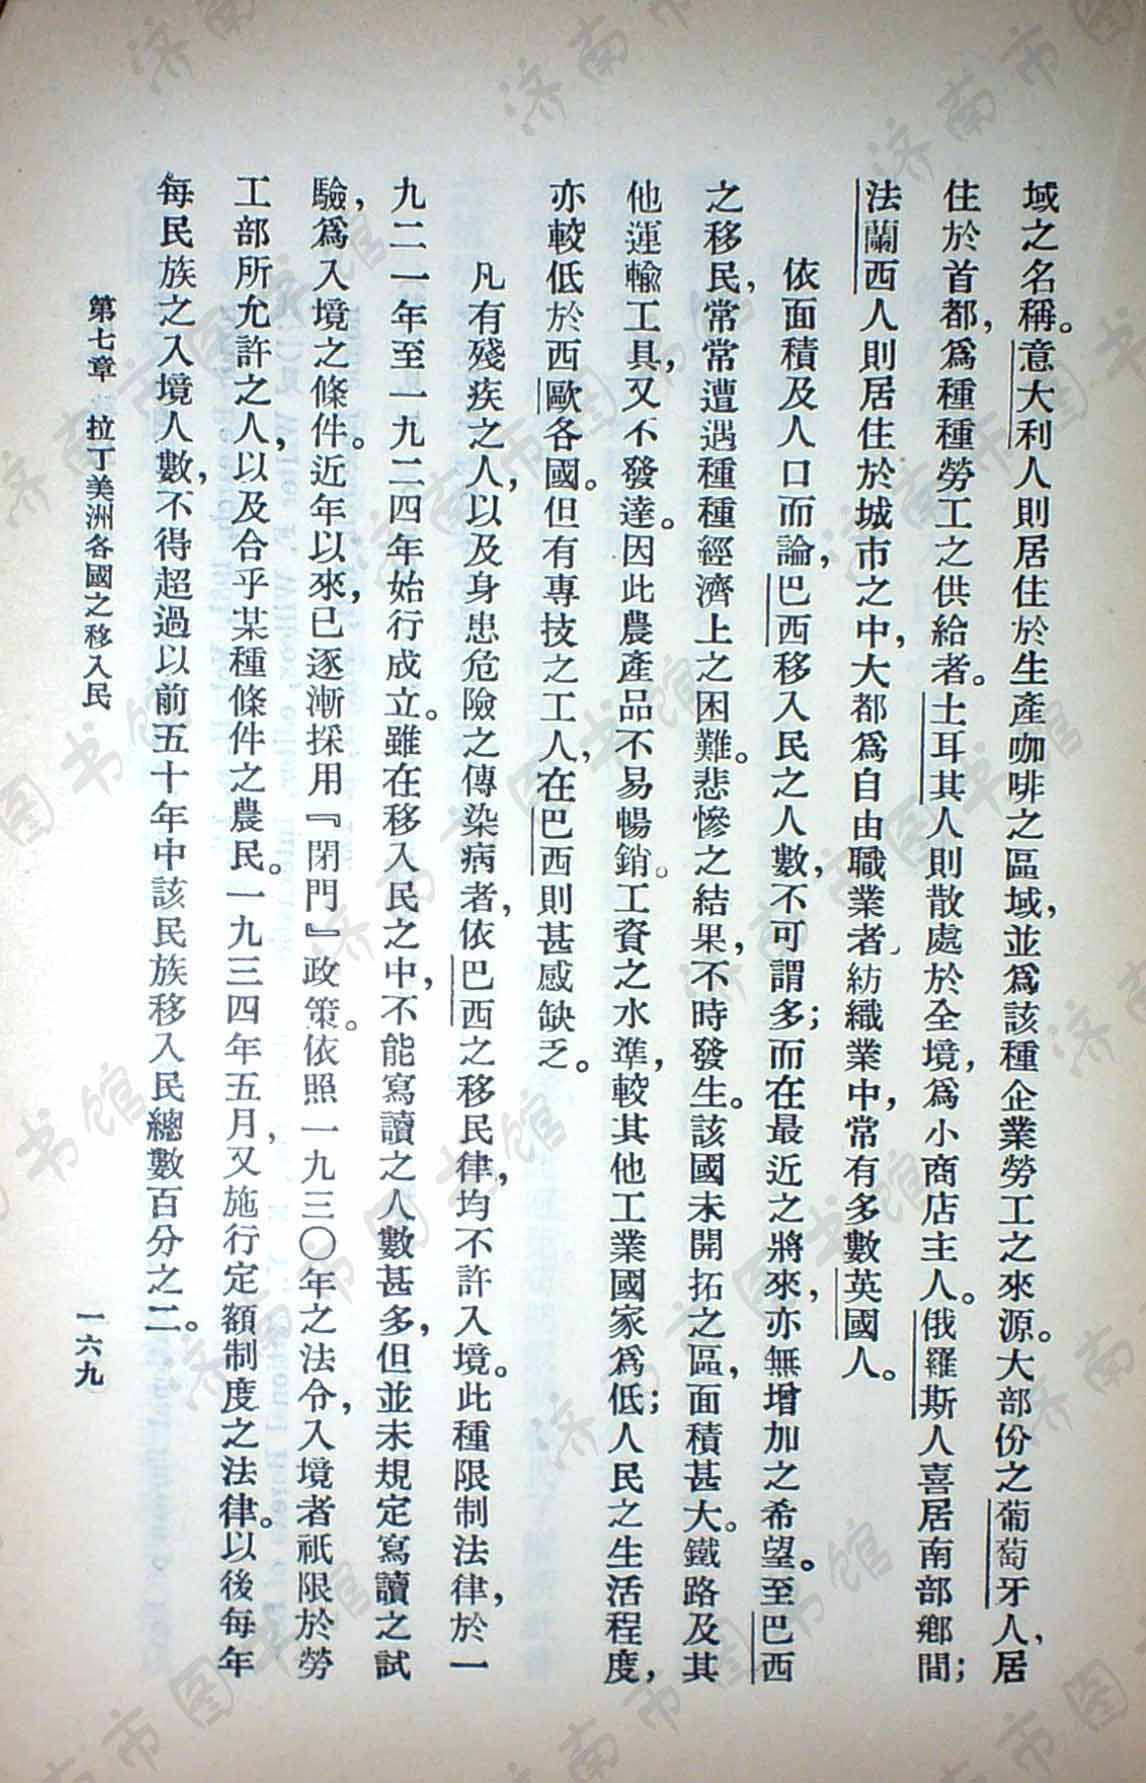 域之名稱。意大利人則居住於生產咖啡之區域，並爲該種企業勞工之來源。大部份之葡萄牙人，居
住於首都，爲種種勞工之供給者。土耳其人則散處於全境，爲小商店主人。俄羅斯人喜居南部鄉間；
法蘭西人則居住於城市之中，大都爲自由職業者，紡織業中，常有多數英國人。
依面積及人口而論，巴西移入民之人數，不可謂多；而在最近之將來，亦無增加之希望。至巴西
之移民，常常遭遇種種經濟上之困難。悲慘之結果，不時發生。該國未開拓之區，面積甚大。鐵路及其
他運輸工具，又不發達。因此農產品不易暢銷。工資之水準，較其他工業國家爲低；人民之生活程度，
亦較低於西歐各國。但有專技之工人，在巴西則甚感缺乏。
凡有殘疾之人，以及身患危險之傳染病者，依巴西之移民律，均不許入境。此種限制法律，於一
九二一年至一九二四年始行成立。雖在移入民之中，不能寫讀之人數甚多，但並未規定寫讀之試
驗，爲入境之條件。近年以來，已逐漸採用『閉門』政策。依照一九三〇年之法令，入境者祇限於勞
工部所允許之人，以及合乎某種條件之農民。一九三四年五月，又施行定額制度之法律。以後每年
每民族之入境人數，不得超過以前五十年中該民族移入民總數百分之二。
第七章 拉丁美洲各國之移入民
一六九
济南市图书馆